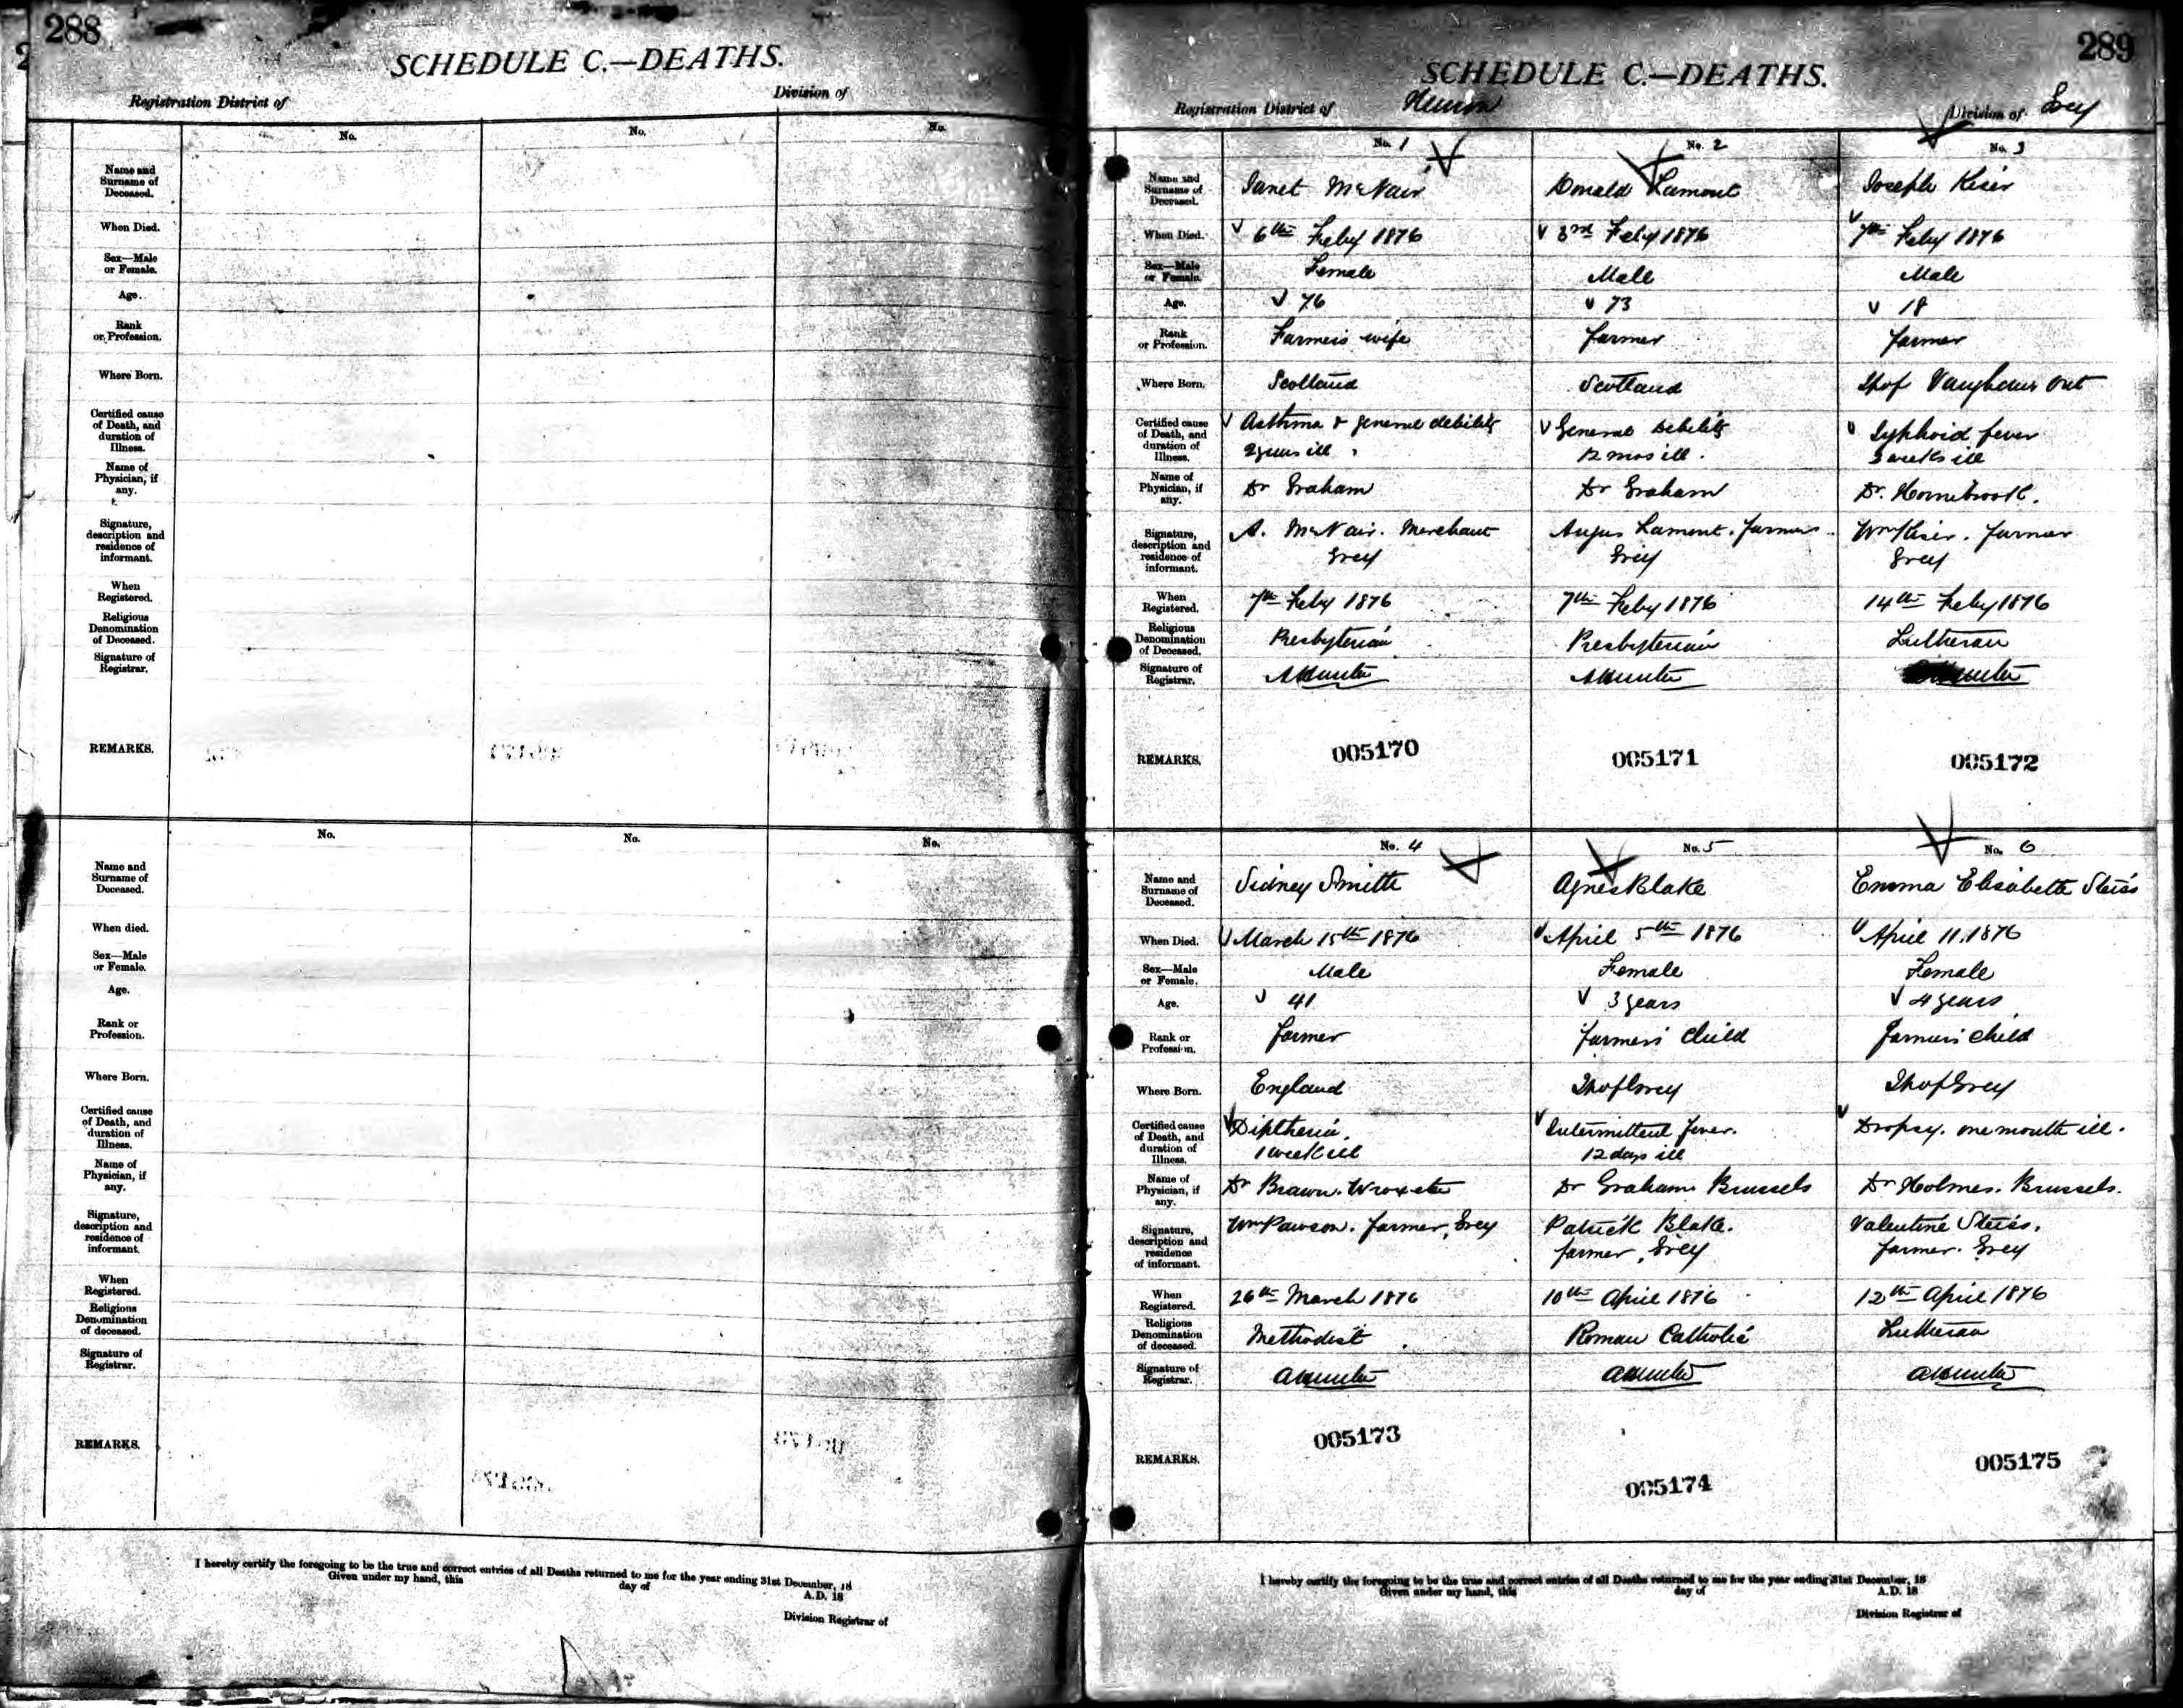 288
SCHEDULE C.—DEATHS.
Registration District of
Division of
No.
No.
No.
Name and
Surname of
Deceased.
When Died.
Sex—Male
or Female.
Age.
Rank
or Profession.
Where Born.
Certified cause
of Death, and
duration of
Illness.
Name of
Physician, if
any.
Signature,
description and
residence of
informant.
When
Registered.
Religious
Denomination
of Deceased.
Signature of
Registrar.
REMARKS.
No.
No.
No.
Name and
Surname of
Deceased.
When died.
Sex—Male
or Female.
Age.
Rank or
Profession.
Where Born.
Certified cause
of Death, and
duration of
Illness.
Name of
Physician, if
any.
Signature,
description and
residence of
informant.
When
Registered.
Religious
Denomination
of deceased.
Signature of
Registrar.
REMARKS.
I hereby certify the foregoing to be the true and correct entries of all Deaths returned to me for the year ending 31st December, 18
Given under my hand, this day of A.D. 18
Division Registrar of
289
SCHEDULE C.—DEATHS.
Registration District of Huron Division of Grey
No. 1 No. 2 No. 3
Name and
Surname of
Deceased.
Janet McNair Donald Lamont Joseph Keser
When Died. 6th Feby 1876 3rd Feby 1876 7th Feby 1876
Sex—Male
or Female.
Female Male Male
Age. 76 73 18
Rank
or Profession.
Farmers wife farmer farmer
Where Born. Scotland Scotland Tp of Vaughan Ont
Certified cause
of Death, and
duration of
Illness.
Asthma & general debility General Debility Typhoid fever
2 years ill 12 mos ill. 3 weeks ill
Name of
Physician, if
any.
Dr Graham Dr Graham Dr. Hornibrook.
Signature,
description and
residence of
informant.
A. McNair. Merchant Angus Lamont. farmer. Wm Keser. farmer
Grey Grey Grey
When
Registered.
7th Feby 1876 7th Feby 1876 14th Feby 1876
Religious
Denomination
of Deceased.
Presbyterian Presbyterian Lutheran
Signature of
Registrar.
A Hunter A Hunter Hunter
REMARKS. 005170 005171 005172
No. 4 No. 5 No. 6
Name and
Surname of
Deceased.
Sidney Smith Agnes Blake Emma Elisabeth Steiss
When Died. March 15th 1876 April 5th 1876 April 11. 1876
Sex—Male
or Female.
Male Female Female
Age. 41 3 years 4 years
Rank or
Profession.
farmer farmers child farmers child
Where Born. England Tp of Grey Tp of Grey
Certified cause
of Death, and
duration of
Illness.
Diptheria. Intermittent fever. Dropsy. one month ill.
1 week ill 12 days ill
Name of
Physician, if
any.
Dr Brawn. Wroxeter Dr Graham Brussels Dr Holmes. Brussels.
Signature,
description and
residence
of informant.
Wm Pawson. farmer, Grey Patrick Blake. Valentine Steiss.
farmer, Grey farmer. Grey
When
Registered.
26th March 1876 10th April 1876 12th April 1876
Religious
Denomination
of deceased.
Methodist Roman Catholic Lutheran
Signature of
Registrar.
A Hunter A Hunter A Hunter
REMARKS. 005173 005174 005175
I hereby certify the foregoing to be the true and correct entries of all Deaths returned to me for the year ending 31st December, 18
Given under my hand, this day of A.D. 18
Division Registrar of